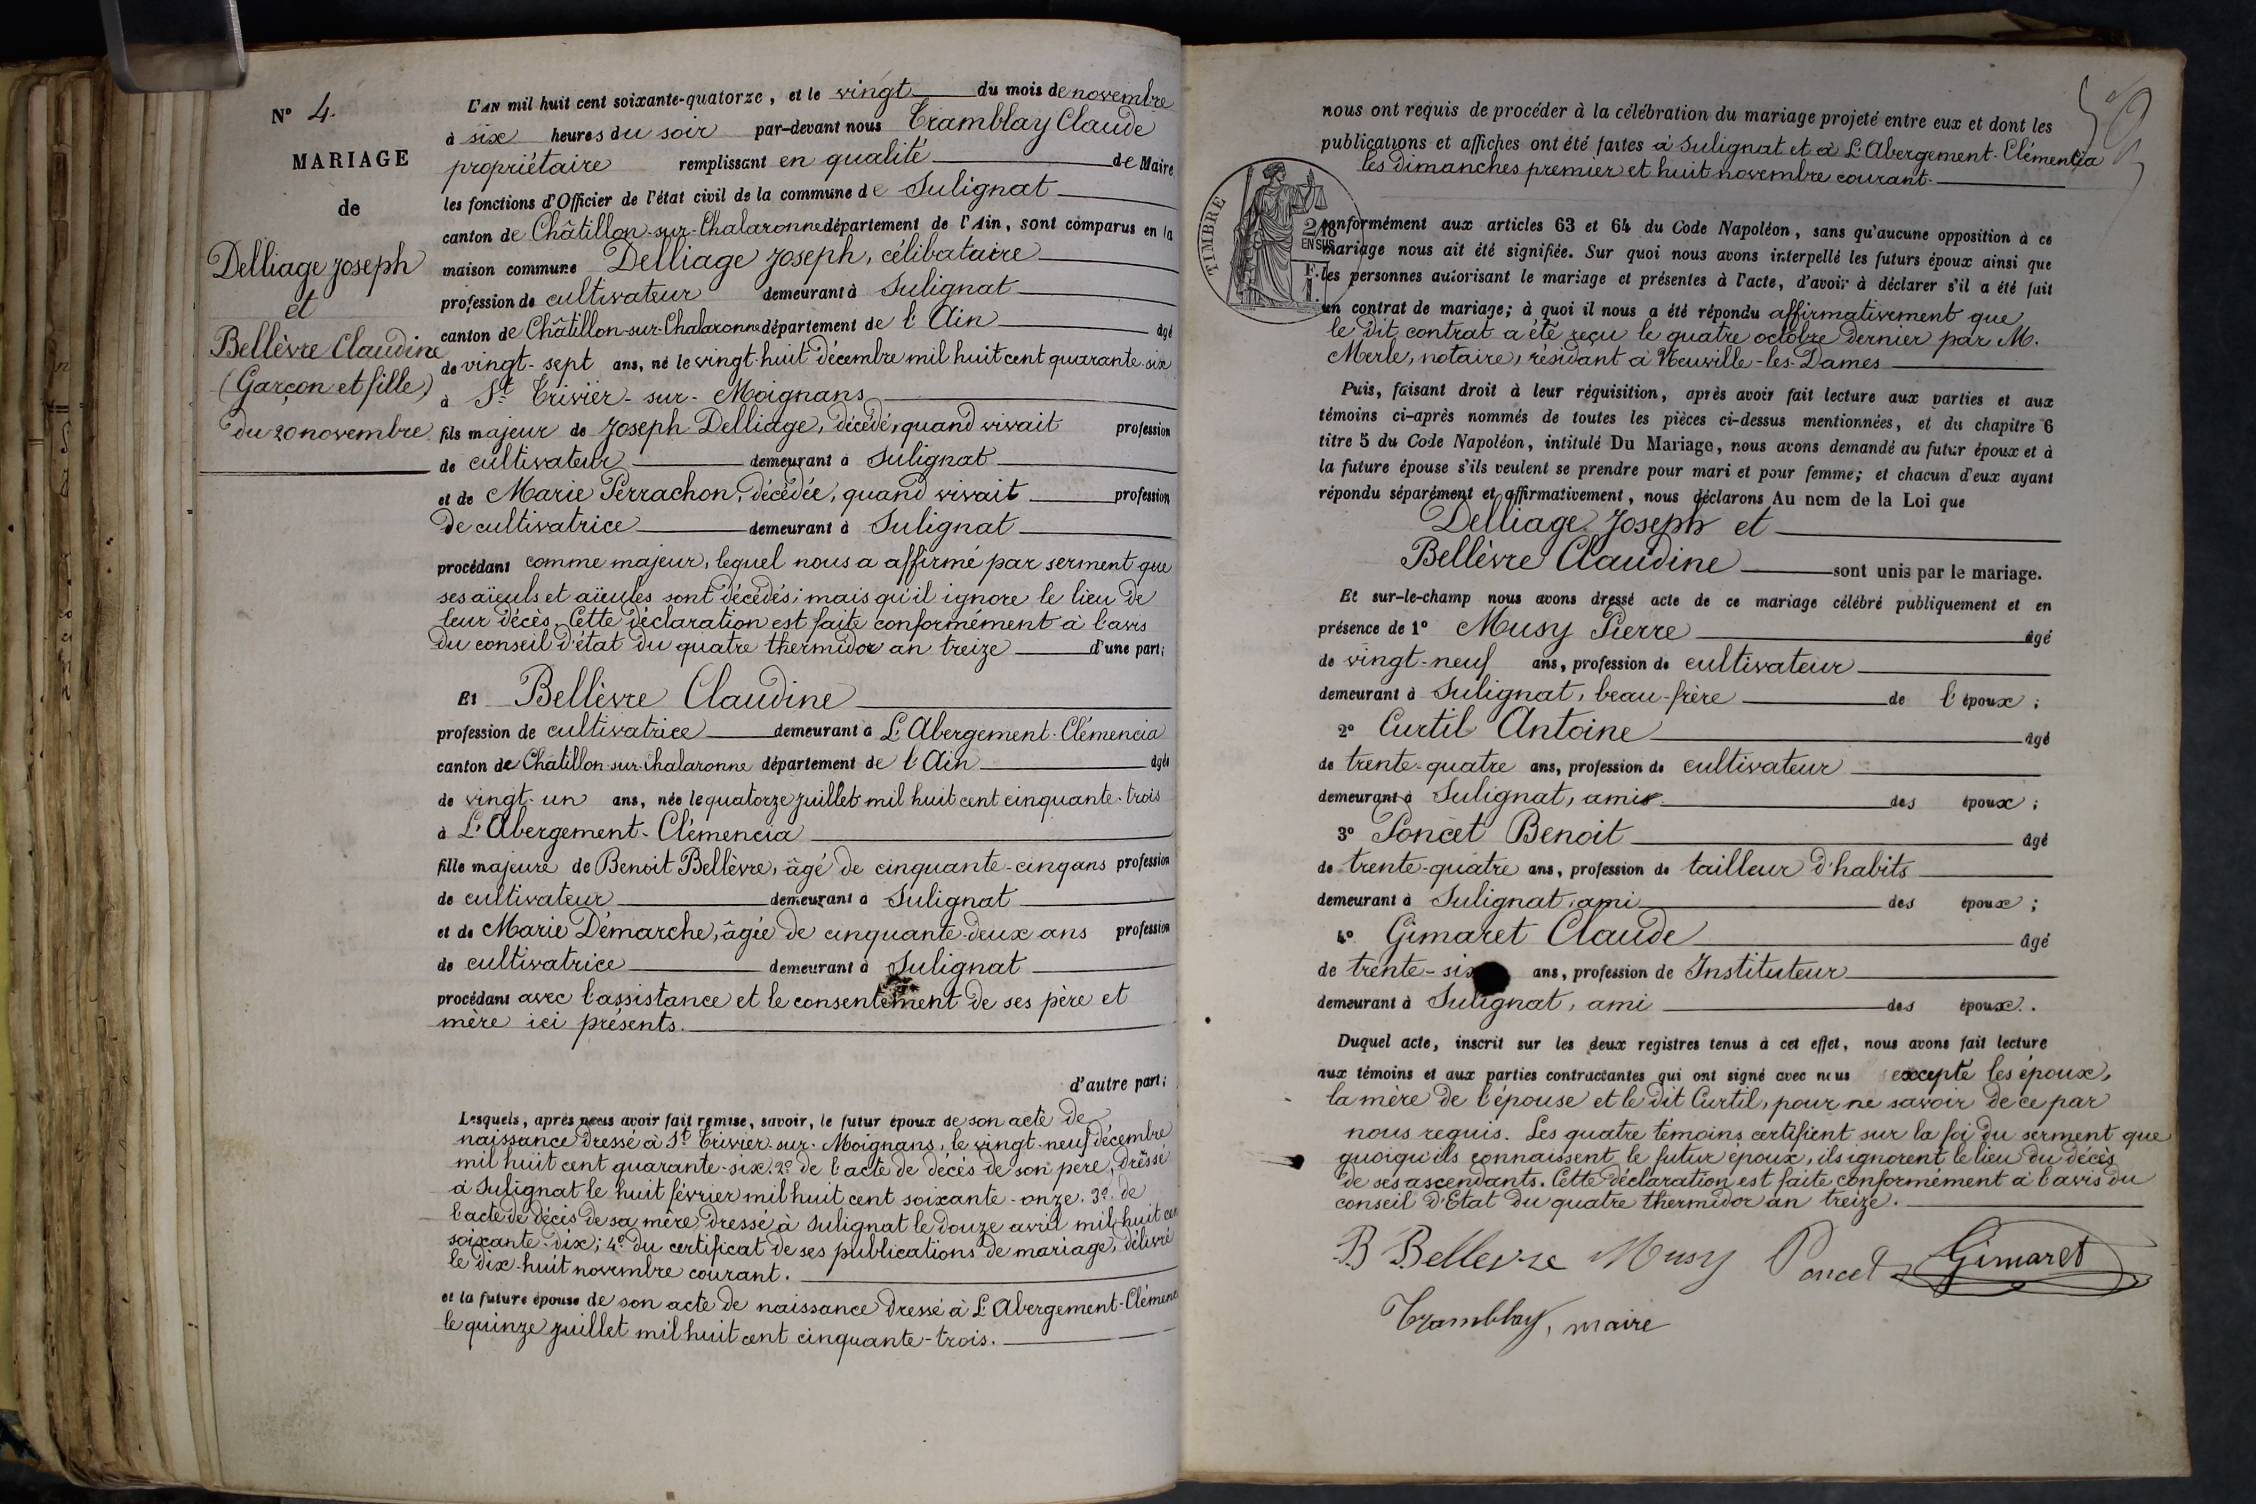 N° 4.
MARIAGE
de
Delliage Joseph
et
Bellèvre Claudine
(Garçon et fille)
du 20 novembre
L'AN mil huit cent soixante-quatorze, et le vingt du mois de novembre
à six heures du soir par-devant nous Tramblay Claude
propriétaire remplissant en qualité de Maire
les fonctions d'Officier de l'état civil de la commune de Sulignat
canton de Châtillon-sur-Chalaronne département de l'Ain, sont comparus en la
maison commune Delliage Joseph, célibataire
profession de cultivateur demeurant à Sulignat
canton de Châtillon-sur-Chalaronne département de l'Ain âgé
de vingt-sept ans, né le vingt-huit décembre mil huit cent quarante-six
à St Trivier-sur-Moignans
fils majeur de Joseph Delliage, décédé, quand vivait profession
de cultivateur demeurant à Sulignat
et de Marie Perrachon, décédée, quand vivait profession
de cultivatrice demeurant à Sulignat
procédant comme majeur, lequel nous a affirmé par serment que
ses aïeuls et aïeules sont décédés; mais qu'il ignore le lieu de
leur décès. Cette déclaration est faite conformément à l'avis
du conseil d'état du quatre thermidor an treize d'une part;
Et Bellèvre Claudine
profession de cultivatrice demeurant à L'Abergement-Clémencia
canton de Chatillon-sur-Chalaronne département de l'Ain âgée
de vingt-un ans, née le quatorze juillet mil huit cent cinquante-trois
à L'Abergement-Clémencia
fille majeure de Benoit Bellèvre, âgé de cinquante-cinq ans profession
de cultivateur demeurant à Sulignat
et de Marie Démarche, âgée de cinquante-deux ans profession
de cultivatrice demeurant à Sulignat
procédant avec l'assistance et le consentement de ses père et
mère ici présents.
d'autre part;
Lesquels, après nous avoir fait remise, savoir, le futur époux de son acte de
naissance dressé à St Trivier-sur-Moignans, le vingt-neuf décembre
mil huit cent quarante-six. 2° de l'acte de décès de son père, dressé
à Sulignat le huit février mil huit cent soixante-onze. 3° de
l'acte de décès de sa mère dressé à Sulignat le douze avril mil huit cent
soixante-dix; 4° du certificat de ses publications de mariage, délivré
le dix-huit novembre courant.
et la future épouse de son acte de naissance dressé à L'Abergement-Clémencia
le quinze juillet mil huit cent cinquante-trois.
nous ont requis de procéder à la célébration du mariage projeté entre eux et dont les
publications et affiches ont été faites à Sulignat et à L'Abergement-Clémencia
les dimanches premier et huit novembre courant.
TIMBRE
2/10
EN SUS
conformément aux articles 63 et 64 du Code Napoléon, sans qu'aucune opposition à ce
mariage nous ait été signifiée. Sur quoi nous avons interpellé les futurs époux ainsi que
les personnes autorisant le mariage et présentes à l'acte, d'avoir à déclarer s'il a été fait
un contrat de mariage; à quoi il nous a été répondu affirmativement que
le dit contrat a été reçu le quatre octobre dernier par M.
Merle, notaire, résidant à Neuville-les-Dames
Puis, faisant droit à leur réquisition, après avoir fait lecture aux parties et aux
témoins ci-après nommés de toutes les pièces ci-dessus mentionnées, et du chapitre 6
titre 5 du Code Napoléon, intitulé Du Mariage, nous avons demandé au futur époux et à
la future épouse s'ils veulent se prendre pour mari et pour femme; et chacun d'eux ayant
répondu séparément et affirmativement, nous déclarons Au nom de la Loi que
Delliage Joseph et
Bellèvre Claudine sont unis par le mariage.
Et sur-le-champ nous avons dressé acte de ce mariage célébré publiquement et en
présence de 1° Musy Pierre âgé
de vingt-neuf ans, profession de cultivateur
demeurant à Sulignat, beau-frère de l'époux;
2° Curtil Antoine âgé
de trente-quatre ans, profession de cultivateur
demeurant à Sulignat, ami des époux;
3° Poncet Benoit âgé
de trente-quatre ans, profession de tailleur d'habits
demeurant à Sulignat, ami des époux;
4° Gimaret Claude âgé
de trente-six ans, profession de Instituteur
demeurant à Sulignat, ami des époux.
Duquel acte, inscrit sur les deux registres tenus à cet effet, nous avons fait lecture
aux témoins et aux parties contractantes qui ont signé avec nous excepté les époux,
la mère de l'épouse et le dit Curtil, pour ne savoir de ce par
nous requis. Les quatre témoins certifient sur la foi du serment que
quoiqu'ils connaissent le futur époux, ils ignorent le lieu du décès
de ses ascendants. Cette déclaration est faite conformément à l'avis du
conseil d'Etat du quatre thermidor an treize.
B Bellevre Musy Poncet Gimaret
Tramblay, maire